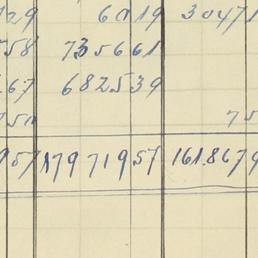 729 6019 30471
558 735661
267 682539
750 75
957 17971957 1618679